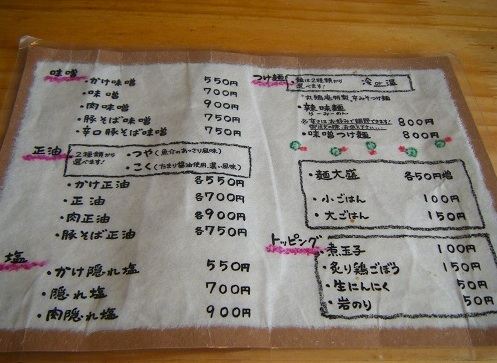 味噌
・かけ味噌 550円
・味噌 700円
・肉味噌 900円
・豚そば味噌 750円
・辛口豚そば味噌 750円
正油
2種類から選べます!
・つや(魚介のあっさり風味)
・こく(たまり醤油使用、濃い風味)
・かけ正油 各550円
・正油 各700円
・肉正油 各900円
・豚そば正油 各750円
塩
・かけ隠れ塩 550円
・隠れ塩 700円
・肉隠れ塩 900円
つけ麺
麺は2種類から選べます!
冷or温
・丸麺庵特製、辛みそつけ麺
・辣味麺
らーみーめん
800円
・味噌つけ麺 800円
・麺大盛 各50円増
・小ごはん 100円
・大ごはん 150円
トッピング
・煮玉子 100円
・炙り鶏ごぼう 150円
・生にんにく 50円
・岩のり 50円